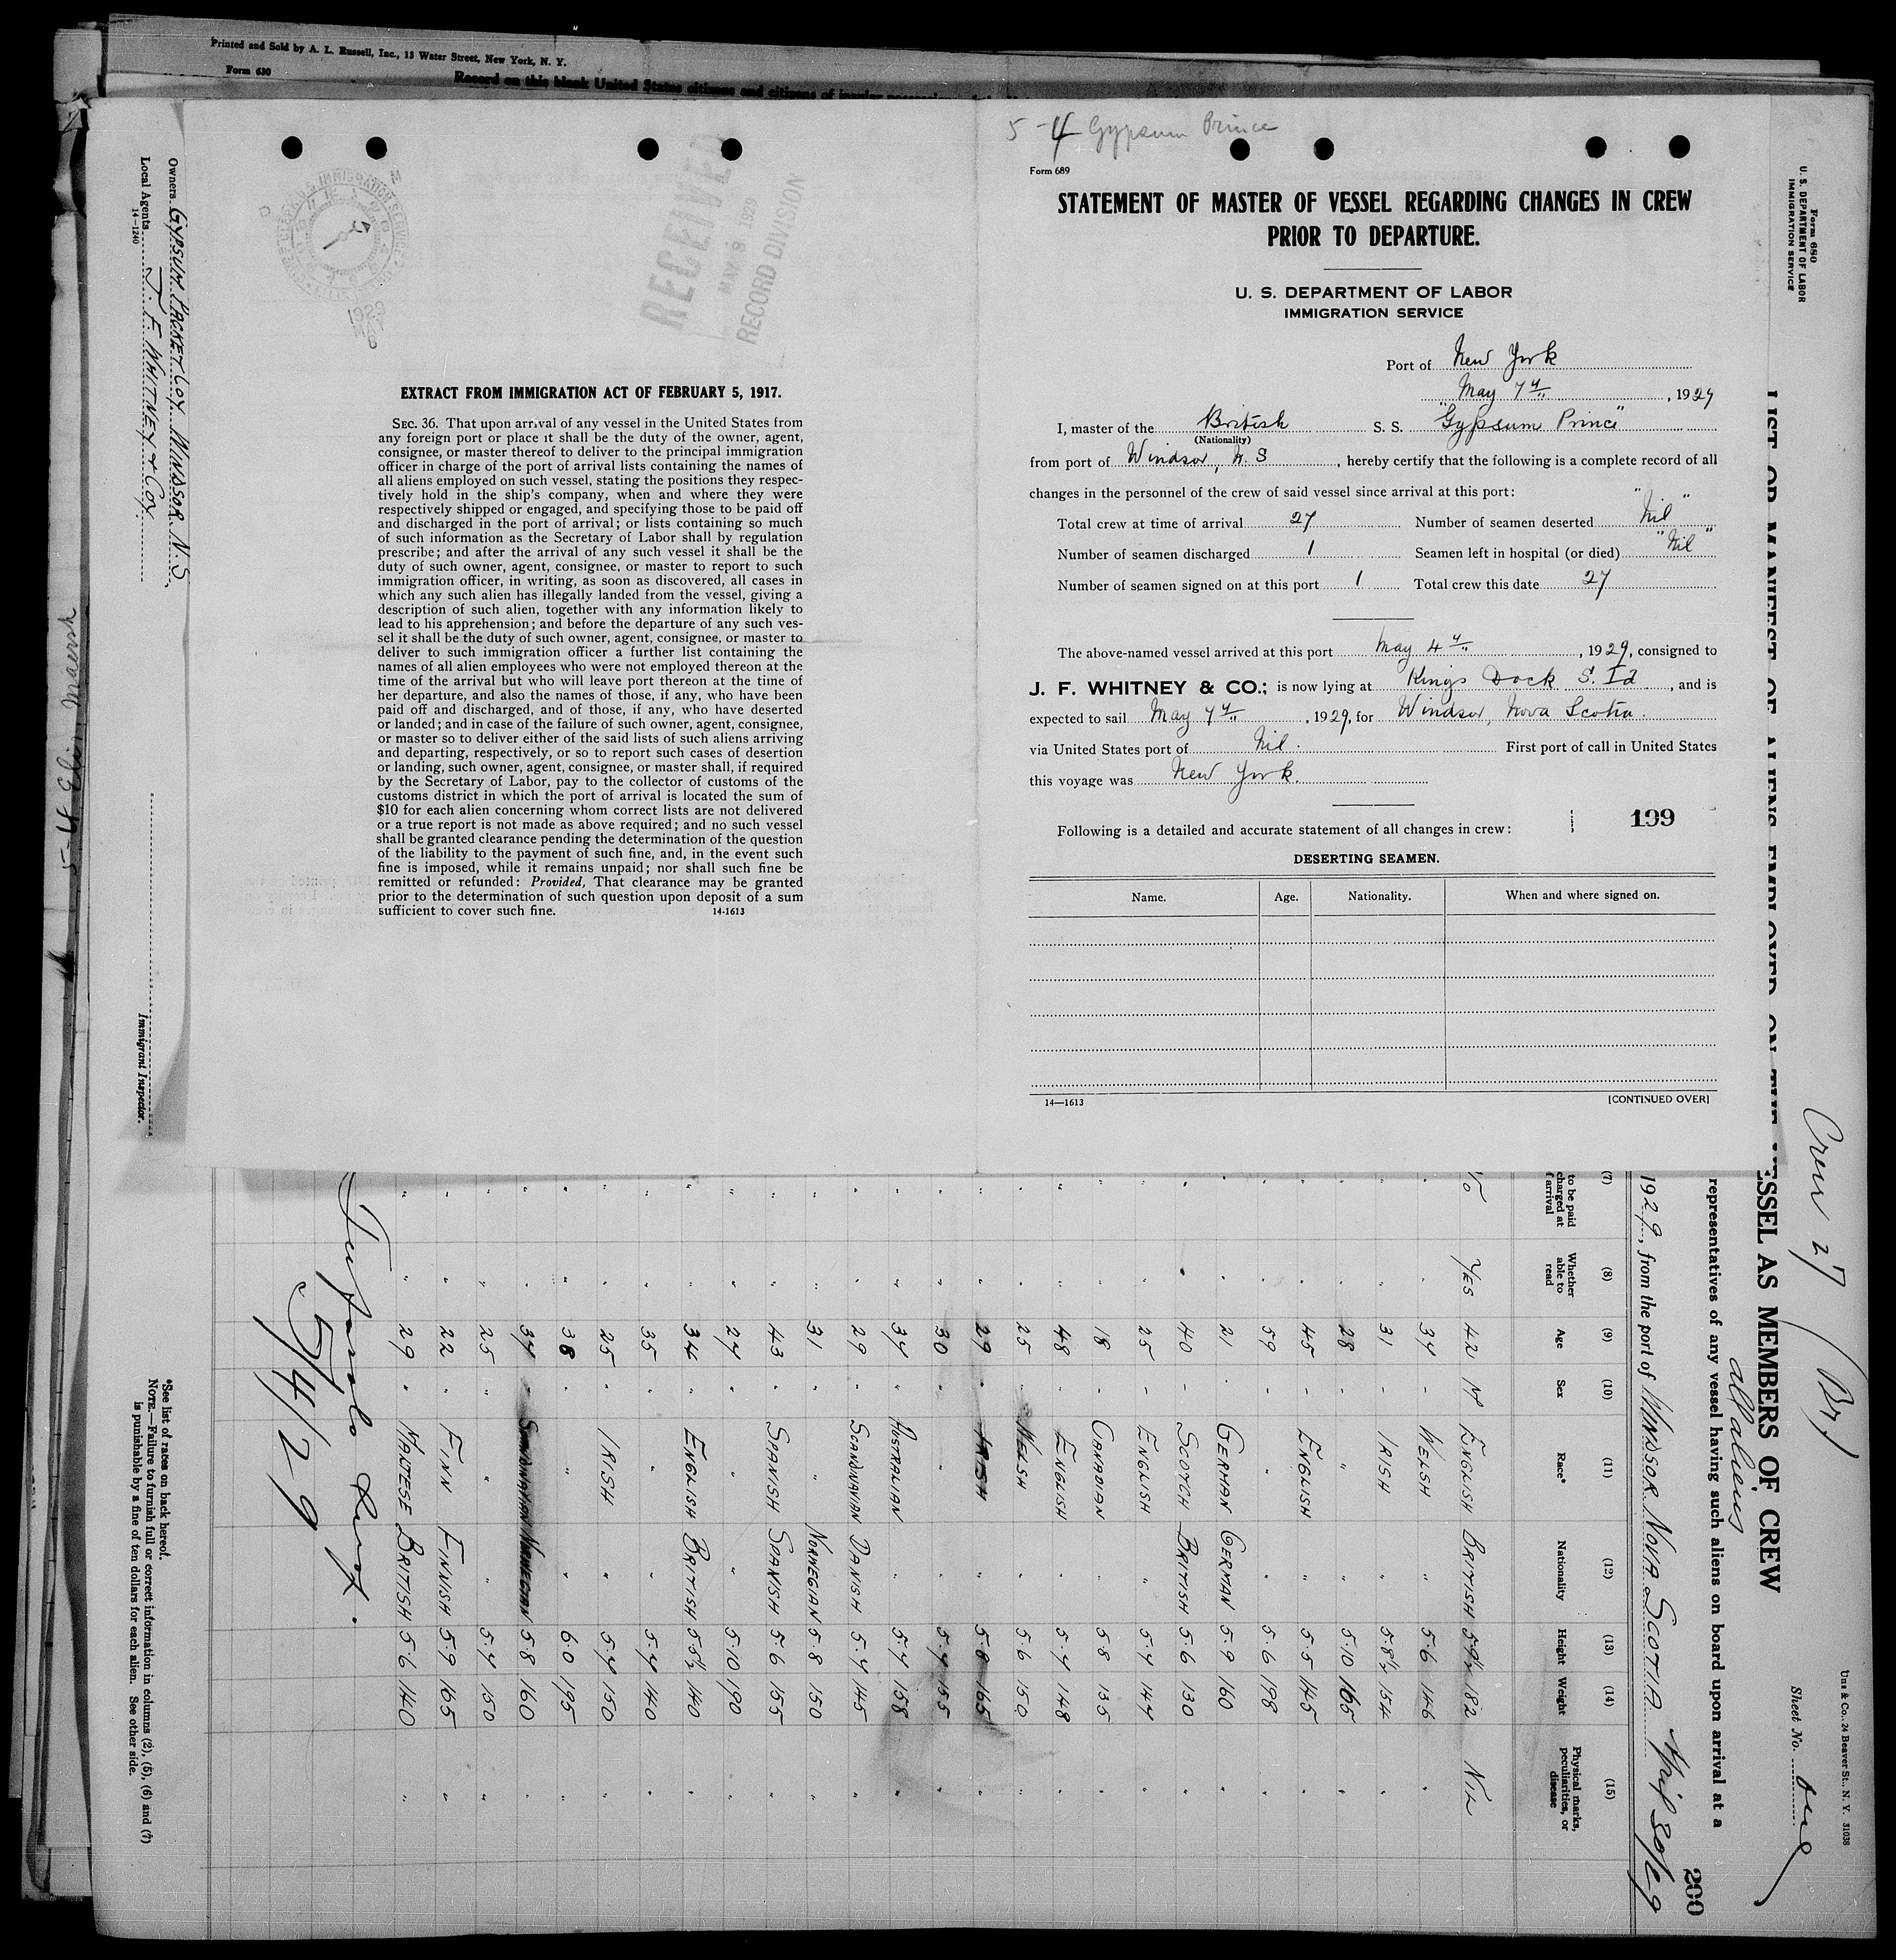 Printed and Sold by A. L. Russell, Inc., 13 Water Street, New York, N. Y.
Form 630
Record on this blank United States citizens and citizens of insular
5-4 Gypsum Prince
RECEIVED
MAY 8 1929
RECORD DIVISION
1929
EXTRACT FROM IMMIGRATION ACT OF FEBRUARY 5, 1917.
SEC. 36. That upon arrival of any vessel in the United States from
any foreign port or place it shall be the duty of the owner, agent,
consignee, or master thereof to deliver to the principal immigration
officer in charge of the port of arrival lists containing the names of
all aliens employed on such vessel, stating the positions they respec-
tively hold in the ship's company, when and where they were
respectively shipped or engaged, and specifying those to be paid off
and discharged in the port of arrival; or lists containing so much
of such information as the Secretary of Labor shall by regulation
prescribe; and after the arrival of any such vessel it shall be the
duty of such owner, agent, consignee, or master to report to such
immigration officer, in writing, as soon as discovered, all cases in
which any such alien has illegally landed from the vessel, giving a
description of such alien, together with any information likely to
lead to his apprehension; and before the departure of any such ves-
sel it shall be the duty of such owner, agent, consignee, or master to
deliver to such immigration officer a further list containing the
names of all alien employees who were not employed thereon at the
time of the arrival but who will leave port thereon at the time of
her departure, and also the names of those, if any, who have been
paid off and discharged, and of those, if any, who have deserted
or landed; and in case of the failure of such owner, agent, consignee,
or master so to deliver either of the said lists of such aliens arriving
and departing, respectively, or so to report such cases of desertion
or landing, such owner, agent, consignee, or master shall, if required
by the Secretary of Labor, pay to the collector of customs of the
customs district in which the port of arrival is located the sum of
$10 for each alien concerning whom correct lists are not delivered
or a true report is not made as above required; and no such vessel
shall be granted clearance pending the determination of the question
of the liability to the payment of such fine, and, in the event such
fine is imposed, while it remains unpaid; nor shall such fine be
remitted or refunded: Provided, That clearance may be granted
prior to the determination of such question upon deposit of a sum
sufficient to cover such fine. 14-1613
Form 689
STATEMENT OF MASTER OF VESSEL REGARDING CHANGES IN CREW
PRIOR TO DEPARTURE.
U. S. DEPARTMENT OF LABOR
IMMIGRATION SERVICE
Port of New York
May 7th, 1929
I, master of the British S. S. "Gypsum Prince"
(Nationality)
from port of Windsor, N. S, hereby certify that the following is a complete record of all
changes in the personnel of the crew of said vessel since arrival at this port:
Total crew at time of arrival 27 Number of seamen deserted "Nil"
Number of seamen discharged 1 Seamen left in hospital (or died) "Nil"
Number of seamen signed on at this port 1 Total crew this date 27
The above-named vessel arrived at this port May 4th, 1929, consigned to
J. F. WHITNEY & CO.; is now lying at Kings Dock S. Id, and is
expected to sail May 7th, 1929, for Windsor, Nova Scotia.
via United States port of Nil. First port of call in United States
this voyage was New York.
Following is a detailed and accurate statement of all changes in crew: 199
DESERTING SEAMEN.
Name. Age. Nationality. When and where signed on.
14—1613 [CONTINUED OVER]
Owners GYPSUM PACKET COY. WINDSOR. N. S.
Local Agents J. F. WHITNEY & COY
14—1240
Immigrant Inspector.
5-4 Elin Maersk
Form 680
U. S. DEPARTMENT OF LABOR
IMMIGRATION SERVICE
Crew 27 (Br)
Sheet No. One
Unz & Co., 24 Beaver St., N. Y. 31038
LIST OR MANIFEST OF ALIENS EMPLOYED ON THE VESSEL AS MEMBERS OF CREW
all aliens
representatives of any vessel having such aliens on board upon arrival at a
200
1929, from the port of WINDSOR. NOVA SCOTIA
(7) (8) (9) (10) (11) (12) (13) (14) (15)
to be paid Whether able to read Age Sex Race* Nationality Height Weight Physical marks, peculiarities, or disease
No YES 42 M ENGLISH BRITISH 5.9½ 182 NIL
" " 34 " WELSH " 5.6 146 "
" " 31 " IRISH " 5.8½ 154 "
" " 28 " " " 5.10 165 "
" " 45 " ENGLISH " 5.5 145 "
" " 59 " " " 5.6 198 "
" " 21 " GERMAN GERMAN 5.9 160 "
" " 40 " SCOTCH BRITISH 5.6 130 "
" " 25 " ENGLISH " 5.4 144 "
" " 18 " CANADIAN " 5.8 135 "
" " 48 " ENGLISH " 5.4 148 "
" " 25 " WELSH " 5.6 150 "
" " 29 " IRISH " 5.8 165 "
" " 30 " " " 5.4 155 "
" " 34 " AUSTRALIAN " 5.4 158 "
" " 29 " SCANDINAVIAN DANISH 5.4 145 "
" " 31 " " NORWEGIAN 5.8 150 "
" " 43 " SPANISH SPANISH 5.6 155 "
" " 24 " " " 5.10 190 "
" " 34 " ENGLISH BRITISH 5.5½ 140 "
" " 35 " " " 5.4 140 "
" " 25 " IRISH " 5.4 150 "
" " 38 " " " 6.0 195 "
" " 34 " SCANDINAVIAN NORWEGIAN 5.8 160 "
" " 25 " " " 5.4 150 "
" " 22 " FINN FINNISH 5.9 165 "
" " 29 " MALTESE BRITISH 5.6 140 "
5/4/29
*See list of races on back hereof.
NOTE.—Failure to furnish full or correct information in columns (2), (5), (6) and (7)
is punishable by a fine of ten dollars for each alien. See other side.